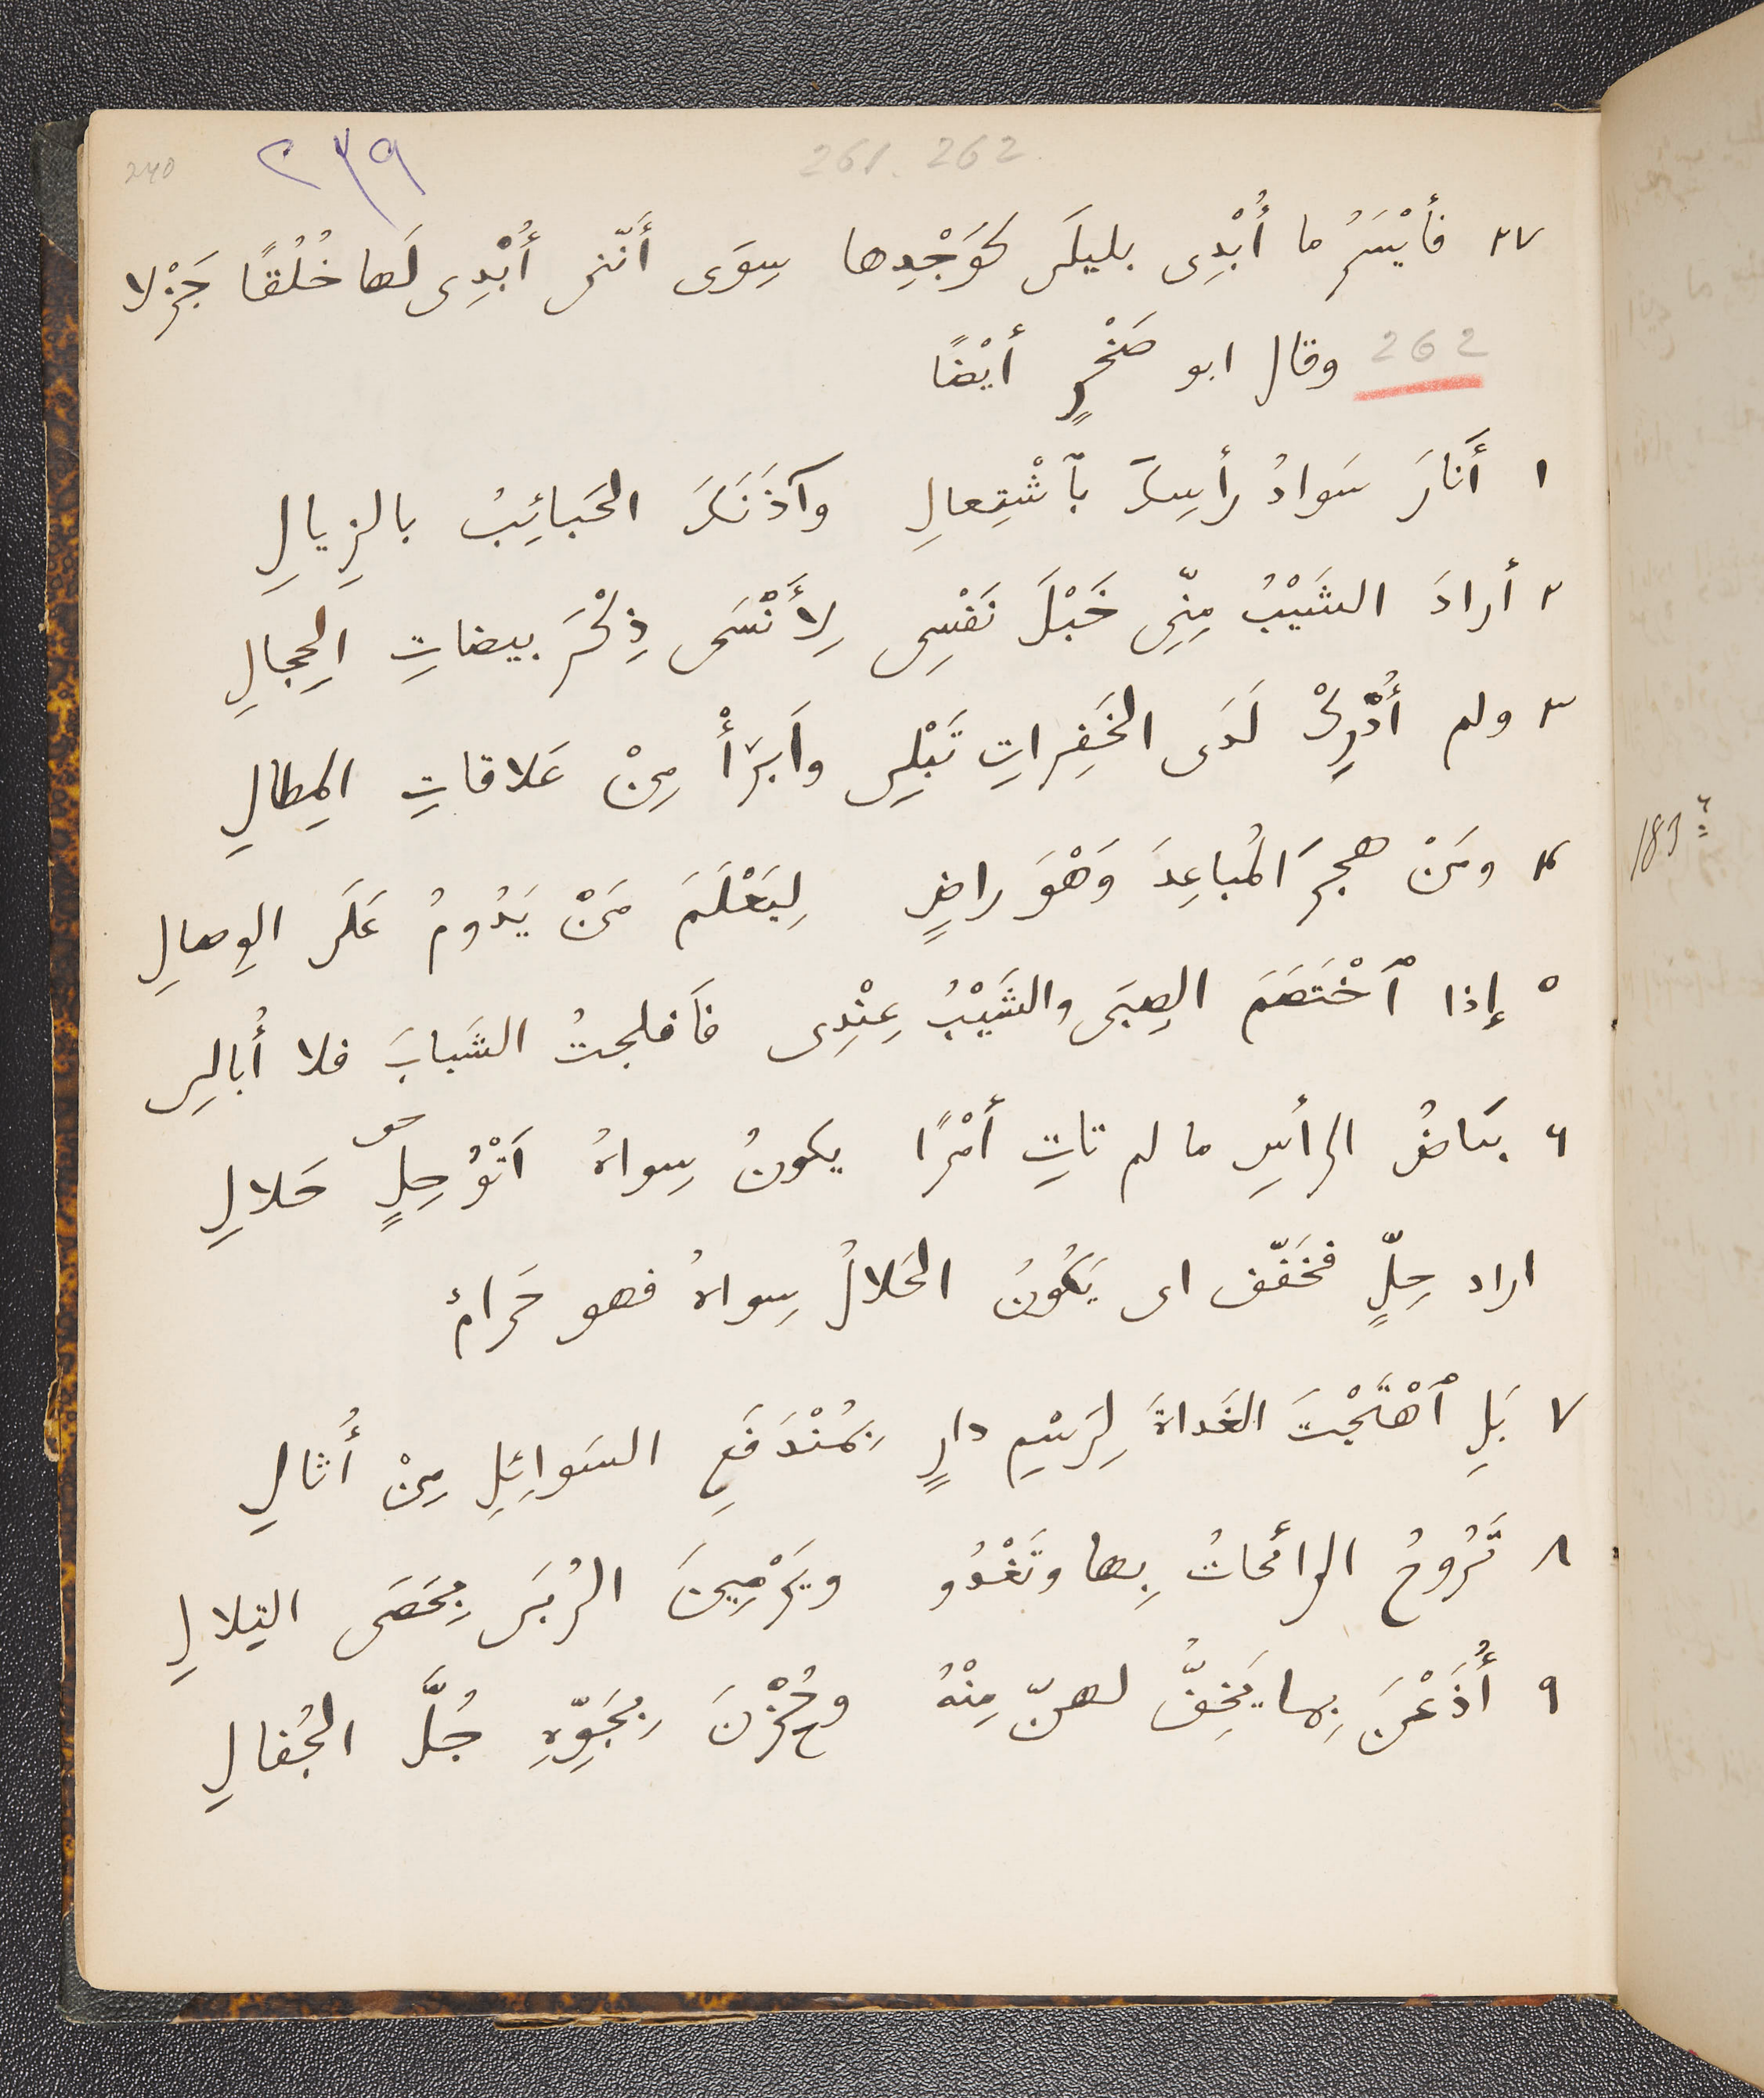 240 ٢٣٩ 261. 262
٢٧ فأَيْسَرُ ما أُبْدِى بليلَى كَوَجْدِها سِوَى أَنّنى أُبْدِى لَها خُلُقًا جَزْلا
262 وقال ابو صَخْرٍ أيْضًا
١ أَنارَ سَوادُ رأسِكَ بٱشْتِعالِ وآذَنَكَ الحَبائِبُ بالزِيالِ
٢ أرادَ الشَيْبُ مِنِّى خَبْلَ نَفْسِى لِأَنْسَى ذِكْرَ بيضاتِ الحِجالِ
٣ ولم أُدْرِكْ لَدَى الخَفِراتِ تَبْلِى وأَبْرَأْ مِنْ عَلاقاتِ المِطالِ
٤ ومَنْ هجرَ المُباعِدَ وَهْوَ راضٍ لِيَعْلَمَ مَنْ يَدُومُ عَلَى الوِصالِ
183
٥ إِذا ٱخْتَصَمَ الصِبَى والشَيْبُ عِنْدِى فَأفلجتُ الشَبابَ فلا أُبالِى
٦ بَياضُ الرأسِ ما لم تاتِ أمْرًا يكونُ سِواهُ أَتْوُ حِلٍ حَلالِ
اراد حِلٍّ فخَفّف اى يَكُونُ الحَلالُ سِواهُ فهو حَرامٌ
٧ بَلِ ٱهْتَجْتَ الغَداةَ لِرَسْمِ دارٍ بِمُنْدَفَعِ السَوائِلِ مِنْ أُثالِ
٨ تَرُوحُ الرائحاتُ بِها وتَغْدُو ويَرْمِينَ الرُبَى بِحَصَى التِلالِ
٩ أُذَعْنَ بِما يَخِفّ لهنّ مِنْهُ وحُزْنَ بِجَوِّهِ جُلَّ الجُفالِ